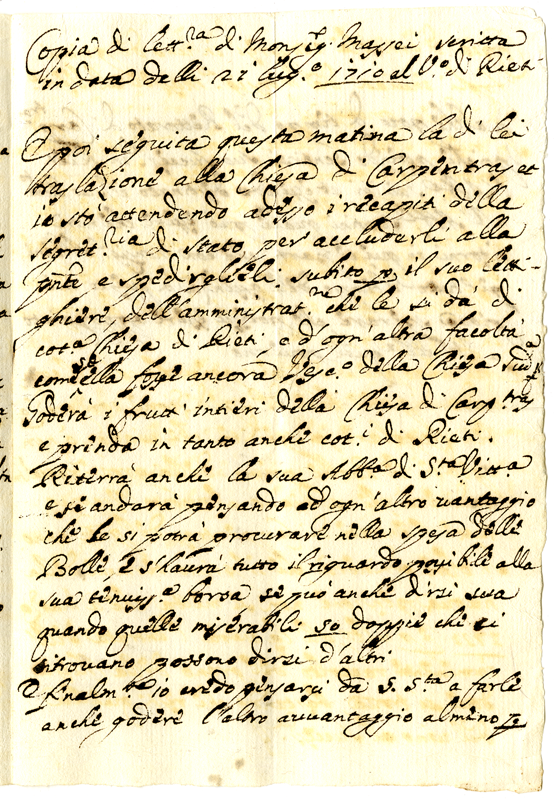 Copia di lett.ra di Monsig.r Massei scritta
in data delli 21 lug.o 1710 al V.o di Rieti
E poi seguita questa matina la di lei
traslazione alla Chiesa di Carpentras et
io stò attendendo adesso i recapiti della
segret.ria di stato per accluderli alla
pnte e spedirglieli subito p il suo letti-
ghiere, dell'amministrat.ne che le si dà di
cot.a Chiesa di Rieti e d'ogn'altra facoltà
come se ella fosse ancora Vesc.o della Chiesa sud.a
Goderà i frutti intieri della Chiesa di Carp.tras
e prenda in tanto anche cot.i di Rieti.
Riterrà anche la sua Abb.a di S.ta Vitt.a
e se andarà pensando ad ogn'altro vantaggio
che le si potrà procurare nella spesa delle
Bolle, e s'haurà tutto il riguardo possibile alla
sua tenuiss.a borsa se può anche dirsi sua
quando quelle miserabili 50 doppie che si
ritrovano possono dirsi d'altri
E finalm.te io credo pensarsi da S. S.tà a farle
anche godere l'altro avvantaggio almeno p